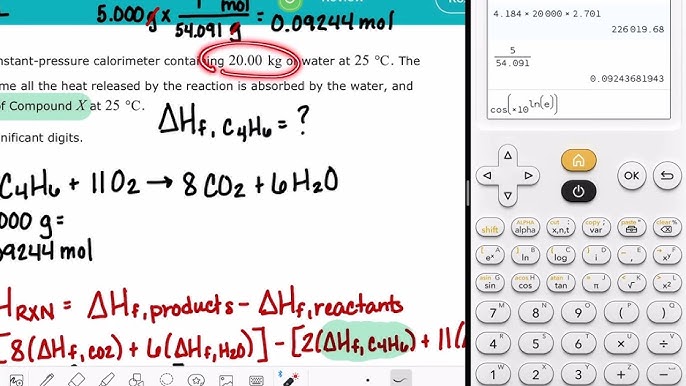 1 mol
5.000 g x = 0.09244 mol
54.091 g
nstant-pressure calorimeter containing 20.00 kg of water at 25 °C. The
me all the heat released by the reaction is absorbed by the water, and
of Compound X at 25 °C.
ΔHf, C4H6 = ?
nificant digits.
C4H6 + 11O2 → 8CO2 + 6H2O
000 g =
09244 mol
HRXN = ΔHf, products - ΔHf, reactants
[8(ΔHf, CO2) + 6(ΔHf, H2O)] - [2(ΔHf, C4H6) + 11(
4.184×20000×2.701
226019.68
5
54.091
0.09243681943
cos(×10 ln(e)
OK
shift
ALPHA
alpha
cut
x,n,t
copy
var
paste
clear
[ eˣ
] ln
{ log
} i
_ ,
< xʸ
asin
sin
acos
cos
atan
tan
= π
< √
> x²
7
8
9
(
)
4
5
6
×
÷
1
2
3
+
−